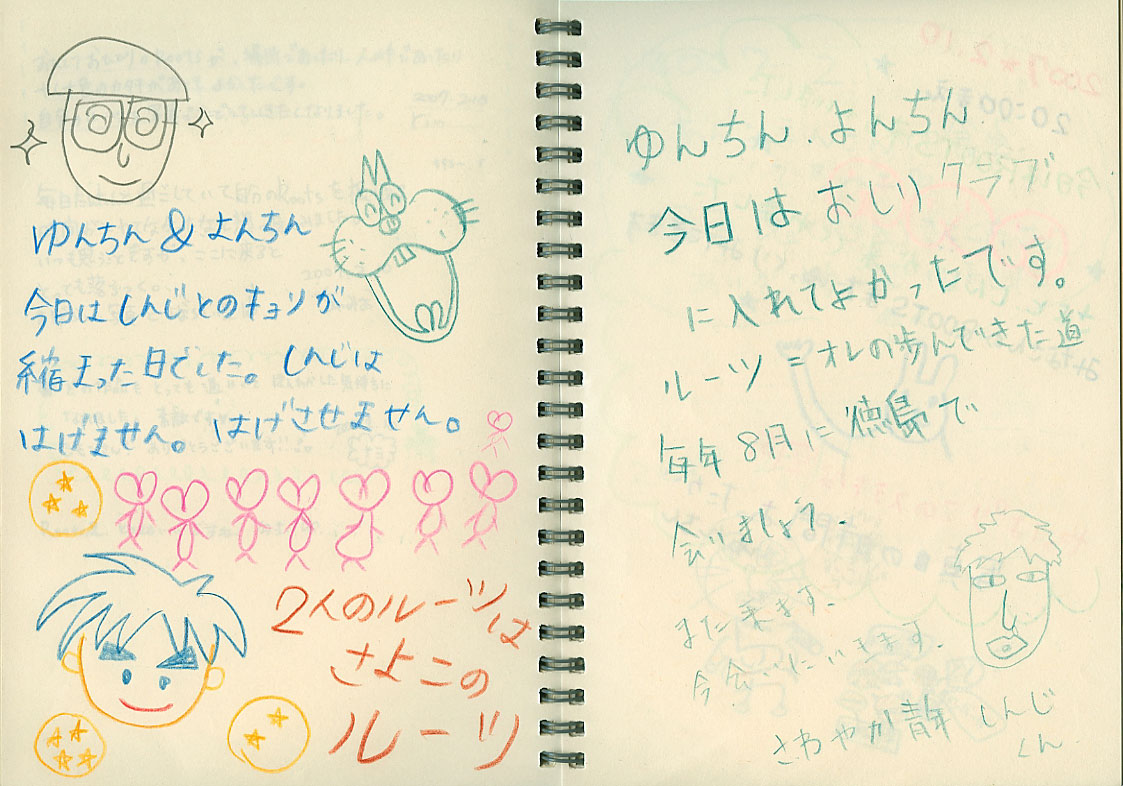 ゆんちん&よんちん
今日はしんじとのキョリが
縮まった日でした。しんじは
はげません。はげさせません。
2人のルーツは
さよこの
ルーツ
ゆんちん、よんちん
今日はおしりクラブ
に入れてよかったです。
ルーツ=オレの歩んできた道
毎年8月に徳島で
会いましょう。
また来ます。
今会いにいきます。
さわやか青年 しんじ
くん